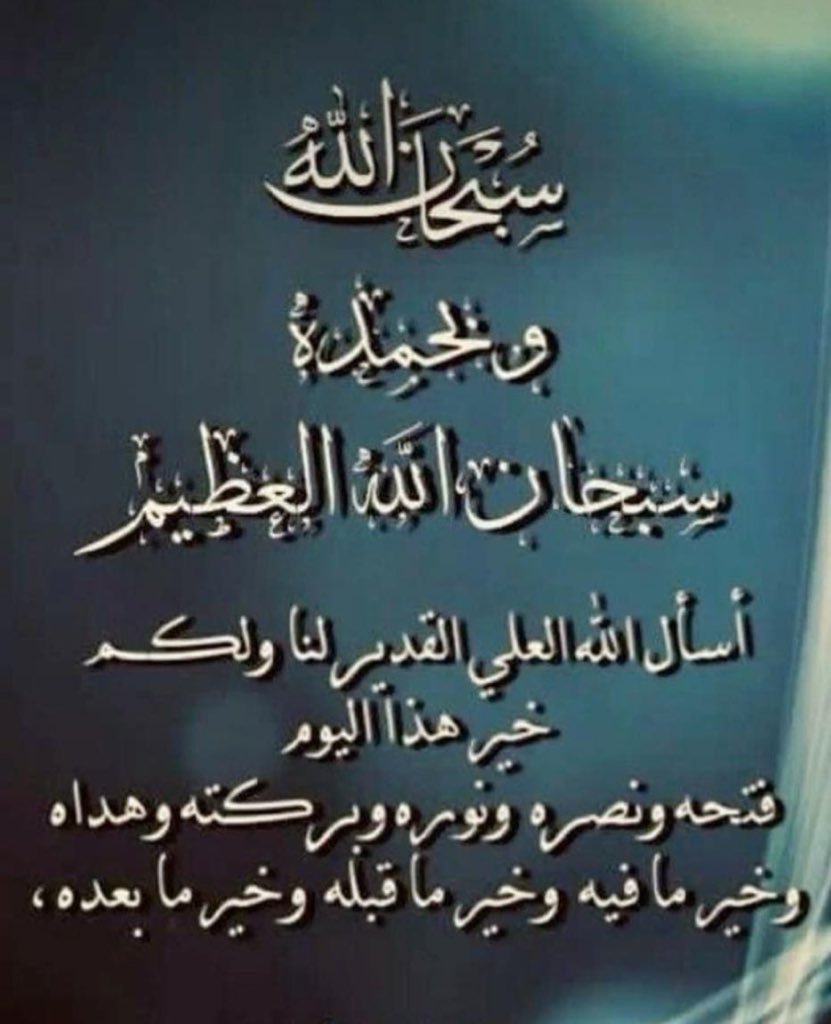 سُبْحَانَ اللّٰهُ
وبحمده
سبحان الله العظيم
أسأل الله العلي القدير لنا ولكم
خير هذا اليوم
فتحه ونصره ونوره وبركته وهداه
وخير ما فيه وخير ما قبله وخير ما بعده،